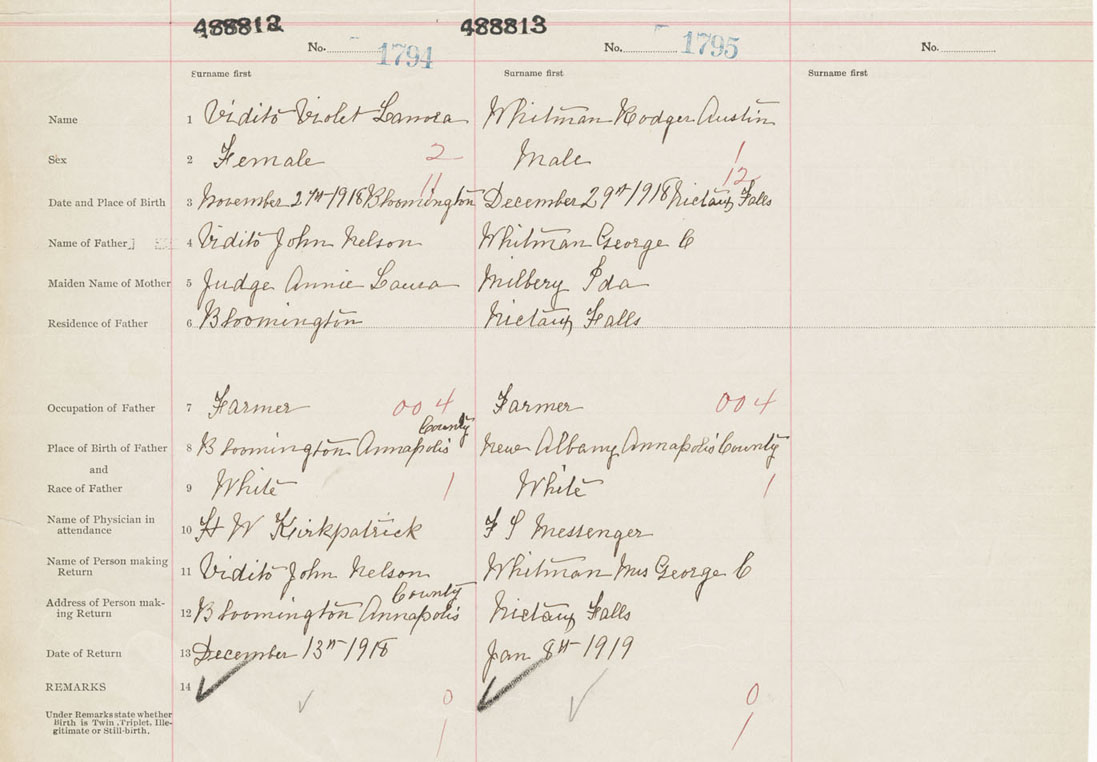 488812 488813
No. 1794 No. 1795 No.
Surname first Surname first Surname first
Name 1 Vidito Violet Whitman Rodger Austin
Sex 2 Female 2 Male 1
11 12
Date and Place of Birth 3 November 27th 1918 Bloomington December 29th 1918 Nictaux Falls
Name of Father 4 Vidito John Nelson Whitman George C
Maiden Name of Mother 5 Judge Annie Laura Milbery Ida
Residence of Father 6 Bloomington Nictaux Falls
Occupation of Father 7 Farmer 004 Farmer 004
County
Place of Birth of Father 8 Bloomington Annapolis New Albany Annapolis County
and
Race of Father 9 White 1 White 1
Name of Physician in
attendance 10 H W Kirkpatrick F S Messenger
Name of Person making
Return 11 Vidito John Nelson Whitman Mrs George C
County
Address of Person mak-
ing Return 12 Bloomington Annapolis Nictaux Falls
Date of Return 13 December 13th 1918 Jan 8th 1919
REMARKS 14
0 0
Under Remarks state whether
Birth is Twin, Triplet, Ille-
gitimate or Still-birth.
1 1